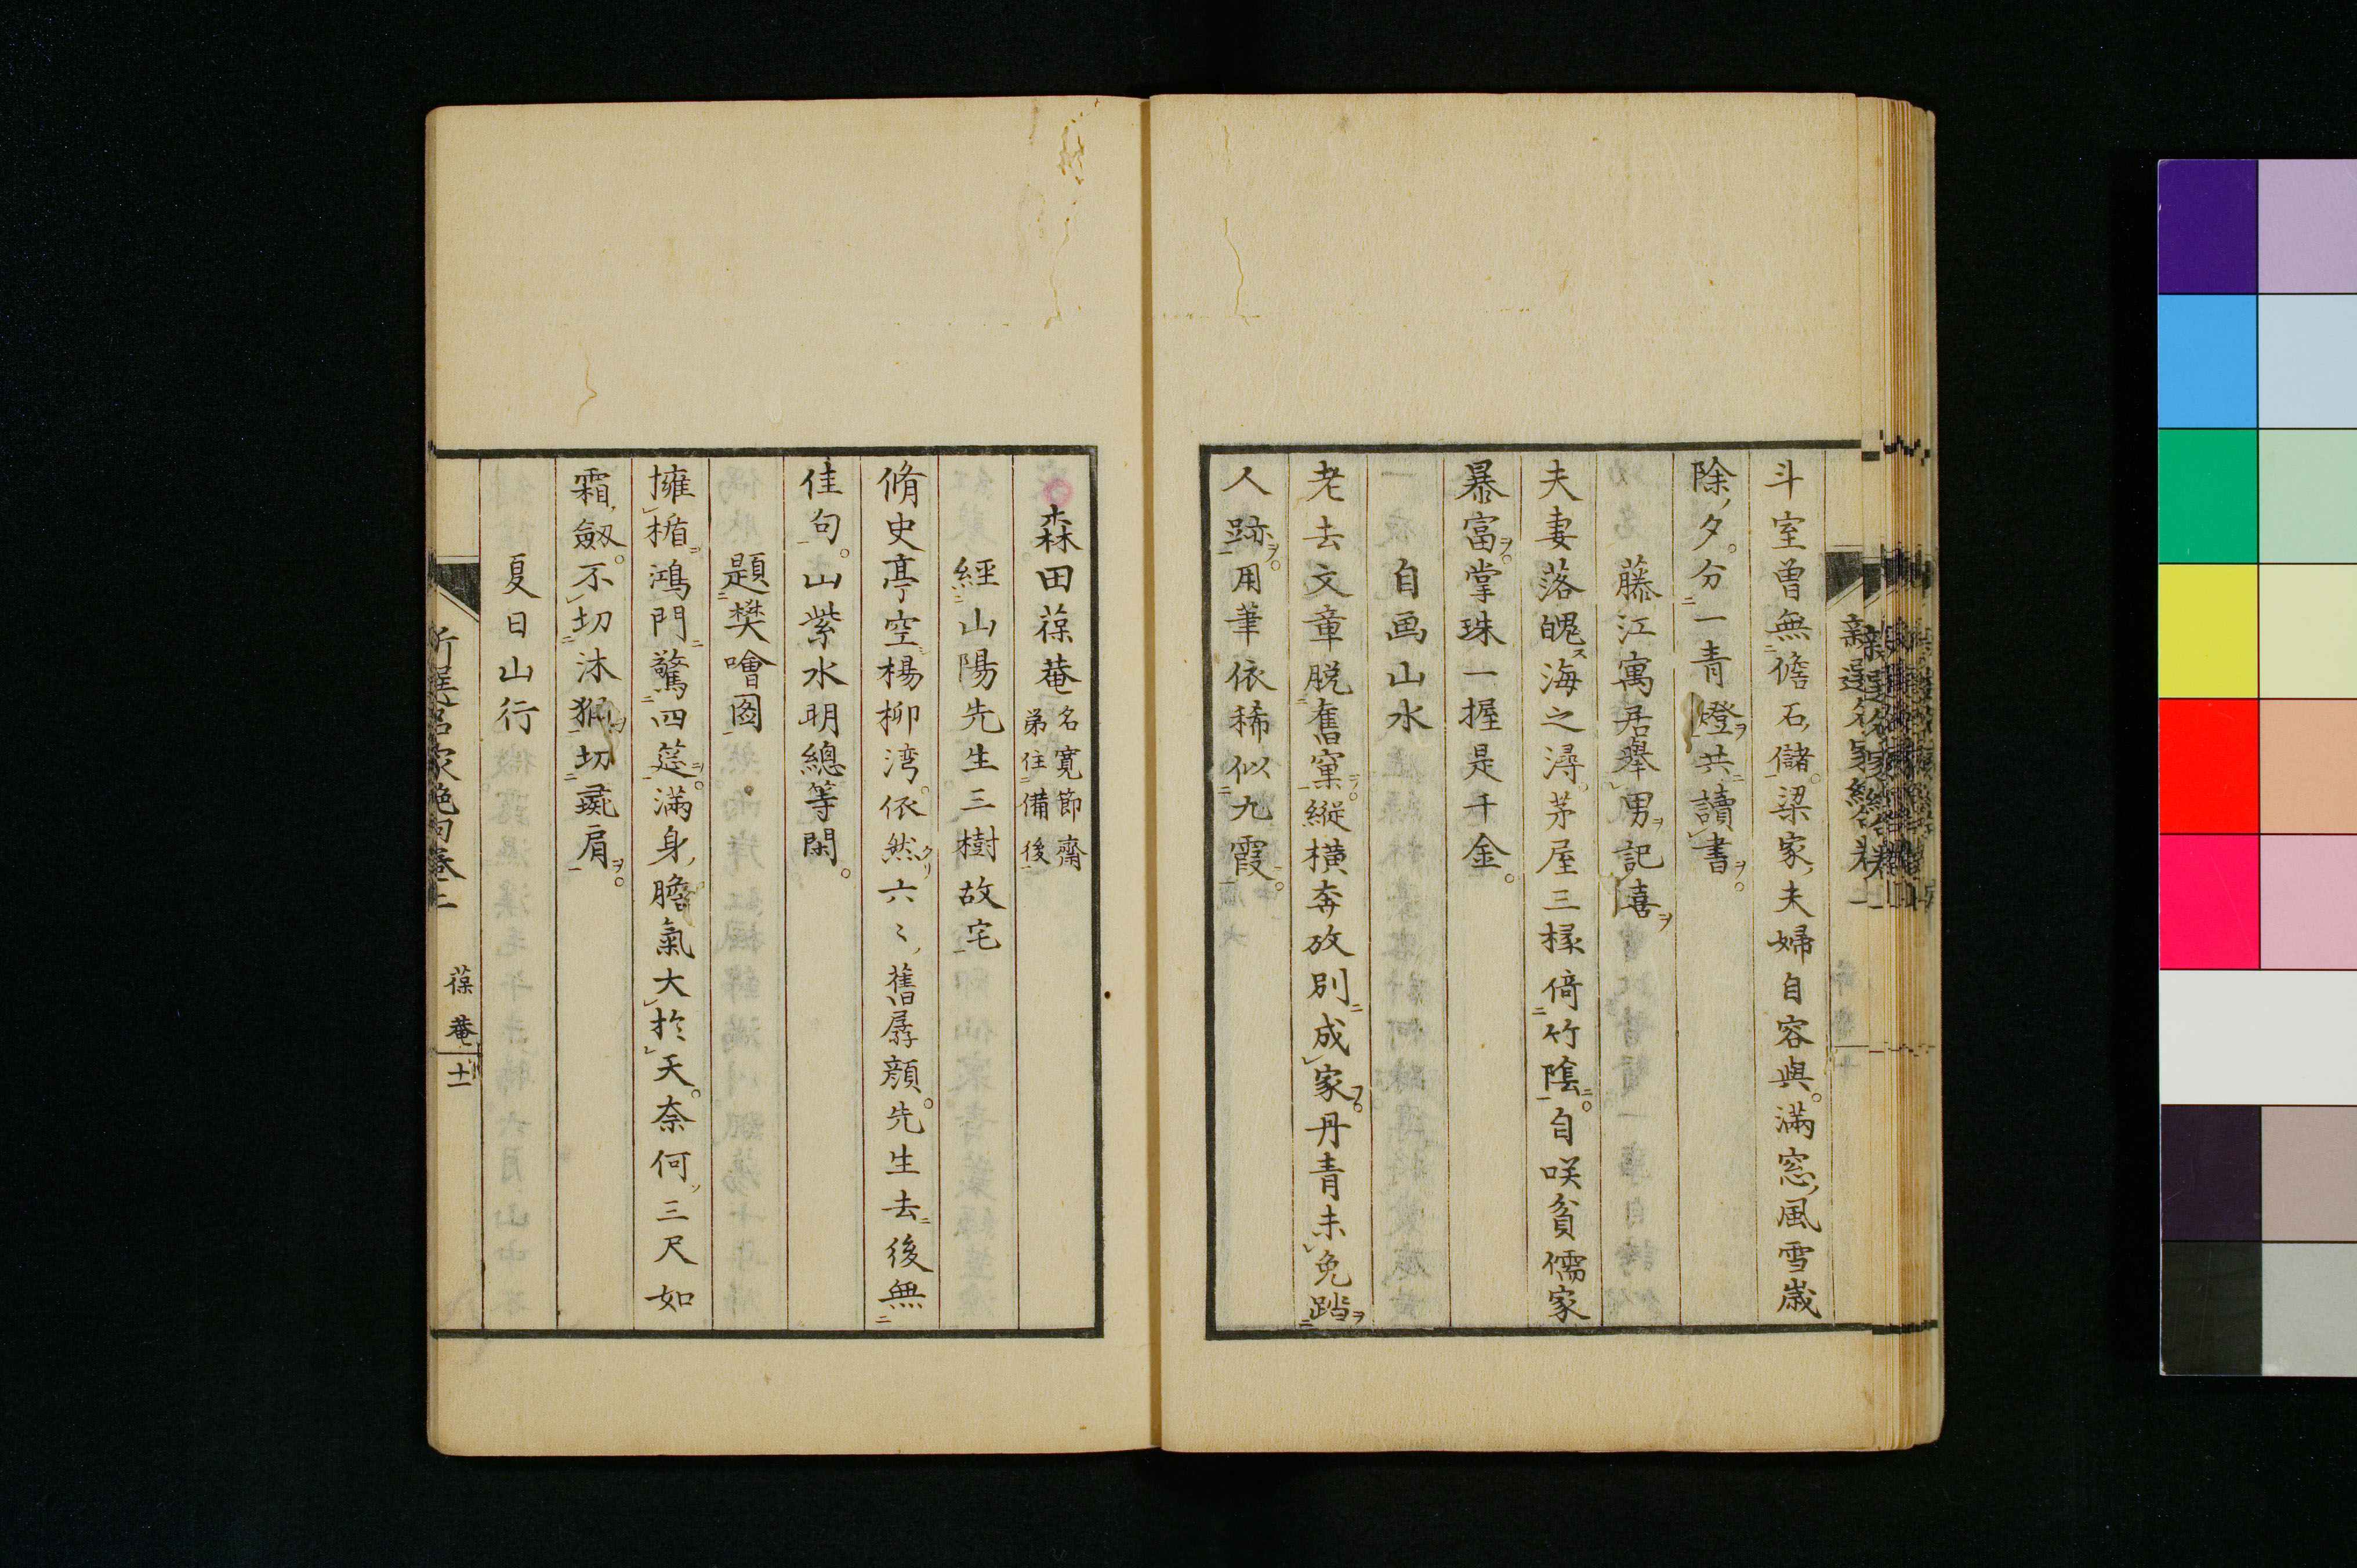 斗室曽無儋石儲。梁家夫婦自容與。滿窓風雪歳
除夕。分一青燈共讀書。
藤江寓居舉男記喜
夫妻落魄海之潯。茅屋三椽倚竹陰。自咲貧儒家
暴富。掌珠一握是千金。
自画山水
老去文章脱舊窠。縦横奔放別成家。丹青未免踏
人跡。用筆依稀似九霞。
森田葆菴 名寛節齋
弟住備後
經山陽先生三樹故宅
脩史亭空楊柳湾。依然六〻舊孱顔。先生去後無
佳句。山紫水明總等閑。
題樊噲圖
擁楯鴻門驚四筵。滿身膽氣大於天。奈何三尺如
霜劔。不切沐猴切彘肩。
夏日山行
新選名家絶句巻上 葆菴 十一